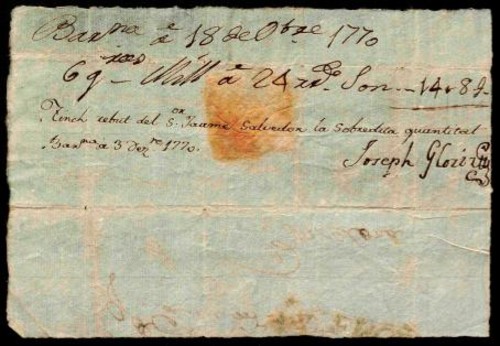 Barna a 18 de Obre 1770
69 Mill a 24 Son 14 8
Tinch rebut del Sor Jaume Salvador la Sobredita quantitat
Barna a 3 1770
Joseph